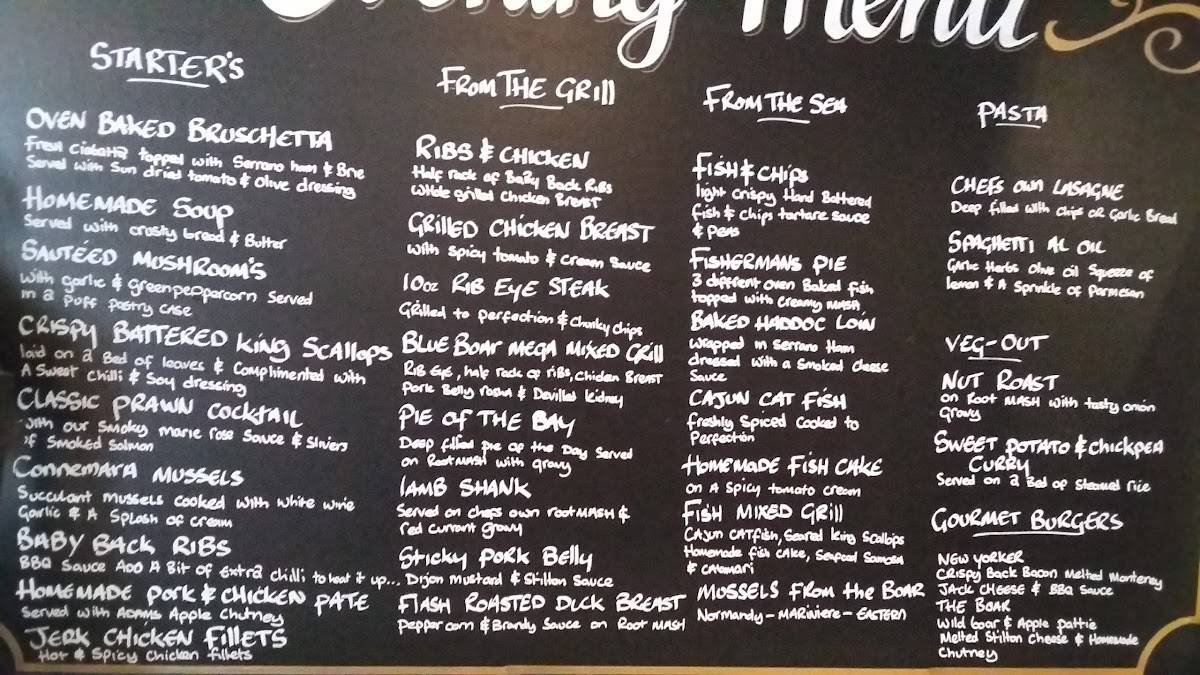 Evening Menu
STARTER'S
OVEN BAKED BRUSCHETTA
Fresh Ciabatta topped with Serrano ham & Brie
Served with Sun dried tomato & Olive dressing
HOMEMADE Soup
Served with crusty bread & Butter
SAUTÉED MUSHROOM'S
with garlic & greenpeppercorn Served
in a Puff Pastry case
CRISPY BATTERED King Scallops
laid on a Bed of leaves & Complimented with
A Sweet Chilli & Soy dressing
CLASSIC PRAWN COCKTAIL
with our Smoky marie rose Sauce & Slivers
of Smoked Salmon
Connemara MUSSELS
Succulant mussels cooked with white wine
Garlic & A Splash of cream
BABY BACK RIBS
BBQ Sauce ADD A Bit of Extra chilli to heat it up...
HOMEMADE PORK & CHICKEN PATE
Served with ADAMS Apple Chutney
JERK CHICKEN FILLETS
Hot & Spicy Chicken fillets
FROM THE GRILL
RIBS & CHICKEN
Half rack of BaBy Back RiBs
Whole grilled Chicken Breast
GRILLED CHICKEN BREAST
with Spicy tomato & cream Sauce
10oz RIB EYE STEAK
GRilled to perfection & Chunky chips
BLUE BOAR MEGA MIXED GRILL
RIB EYE, half rack of ribs, Chicken Breast
Pork Belly roma & Devilled kidney
PIE OF THE BAY
Deep filled pie of the Day Served
on Root MASH with gravy
LAMB SHANK
Served on chefs own root MASH &
red currant gravy
Sticky PORK Belly
Dijon Mustard & Stilton Sauce
FLASH ROASTED DUCK BREAST
Peppercorn & Brandy Sauce on Root MASH
FROM THE SEA
FISH & CHIPS
light Crispy Hand Battered
fish & chips tartare sauce
& Peas
FISHERMANS PIE
3 different oven Baked fish
topped with creamy MASH
BAKED HADDOC LOIN
Wrapped in Serrano Ham
dressed with a Smoked Cheese
Sauce
CAJUN CAT FISH
Freshly Spiced Cooked to
Perfection
HOMEMADE FISH CAKE
on A Spicy tomato cream
FISH MIXED GRILL
CAJUN CATfish, Seared King Scallops
Homemade fish cake, Seafood Samosa
& Calamari
MUSSELS FROM the BOAR
Normandy - MARiniere - EASTERN
PASTA
CHEFS OWN LASAGNE
Deep filled with chips OR Garlic Bread
SPAGHETTI AL OIL
Garlic Herbs Olive oil Squeeze of
lemon & A Sprinkle of Parmesan
VEG-OUT
NUT ROAST
on Root MASH with tasty onion
Gravy
SWEET POTATO & CHICKPEA
CURRY
Served on a Bed of Steamed rice
GOURMET BURGERS
NEW YORKER
CRispy Back Bacon Melted Monterey
JACK CHEESE & BBQ Sauce
THE BOAR
Wild boar & Apple pattie
Melted Stilton Cheese & Homemade
Chutney